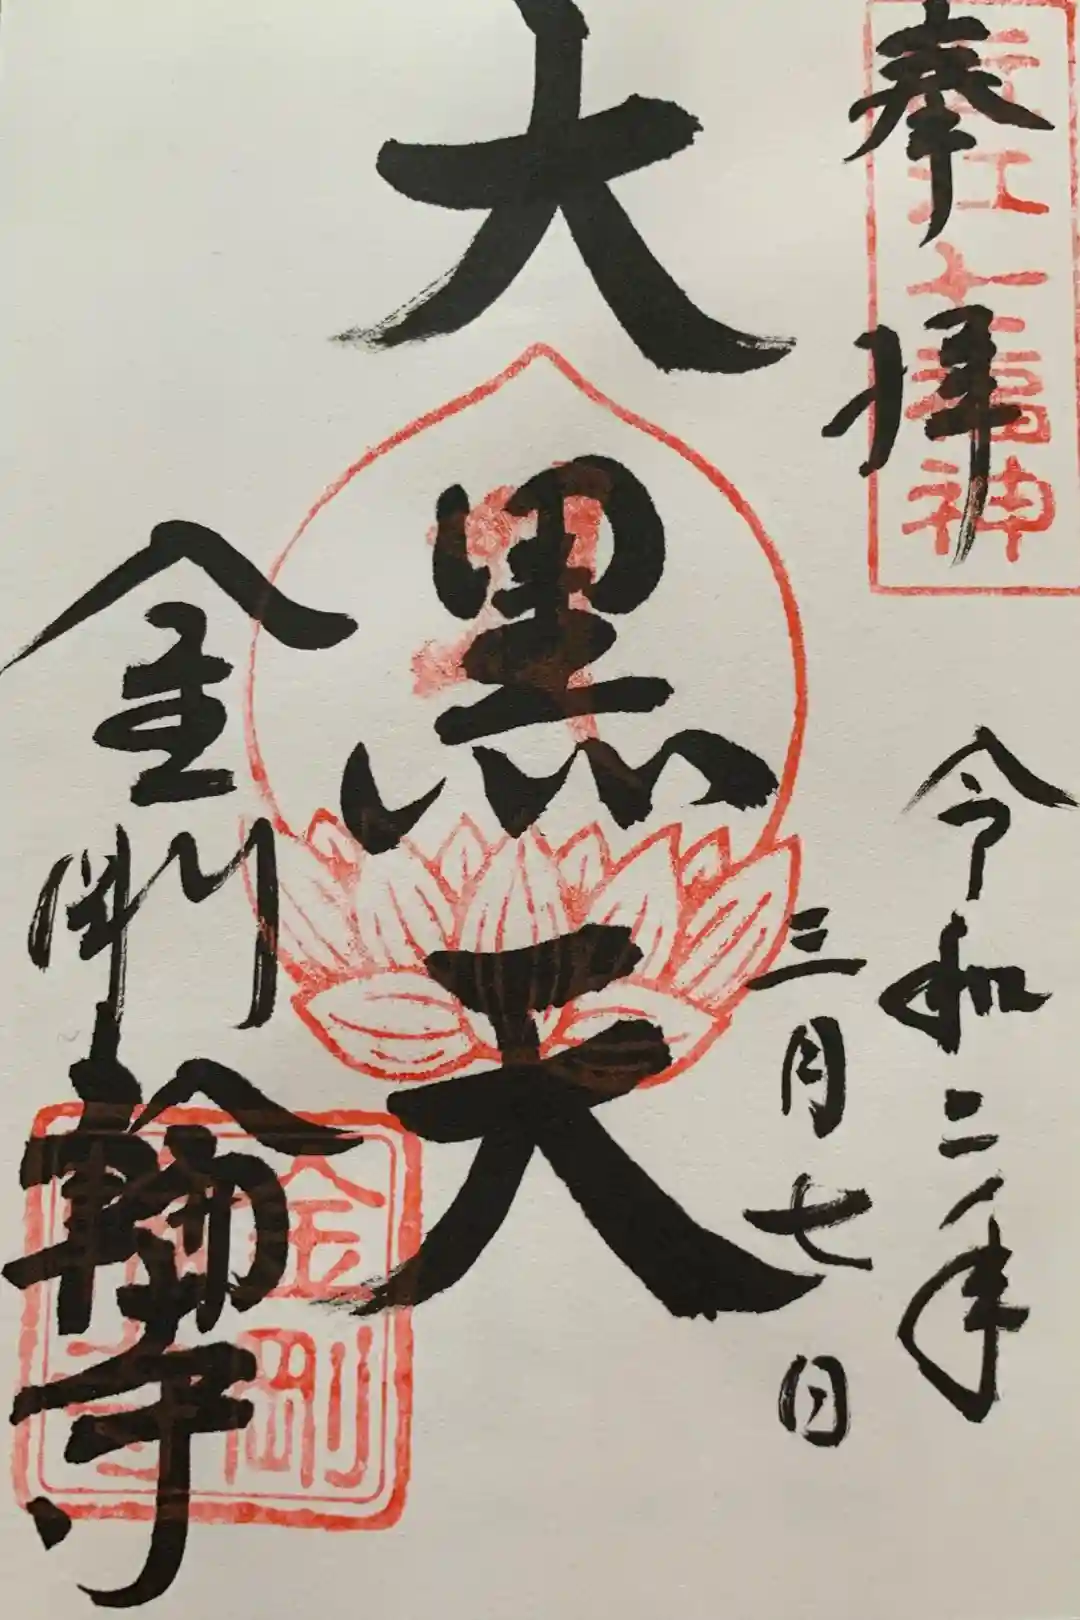 奉拝
令和二年
三月七日
大黒天
金剛輪寺
江七福神
金剛輪寺